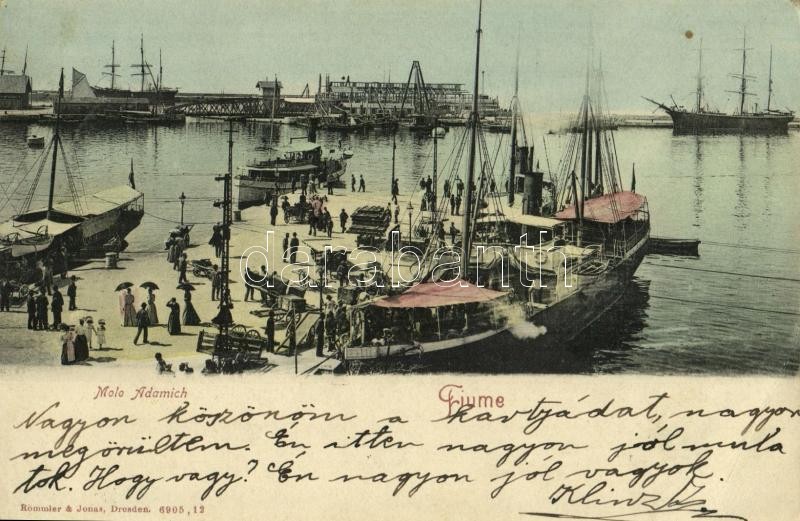 darabanth
Molo Adamich
Fiume
Nagyon köszönöm a kavtjádat, nagyon
megörültem. Én itten nagyon jól mula
tok. Hogy vagy? Én nagyon jól vagyok.
Römmler & Jonas, Dresden. 6905, 12